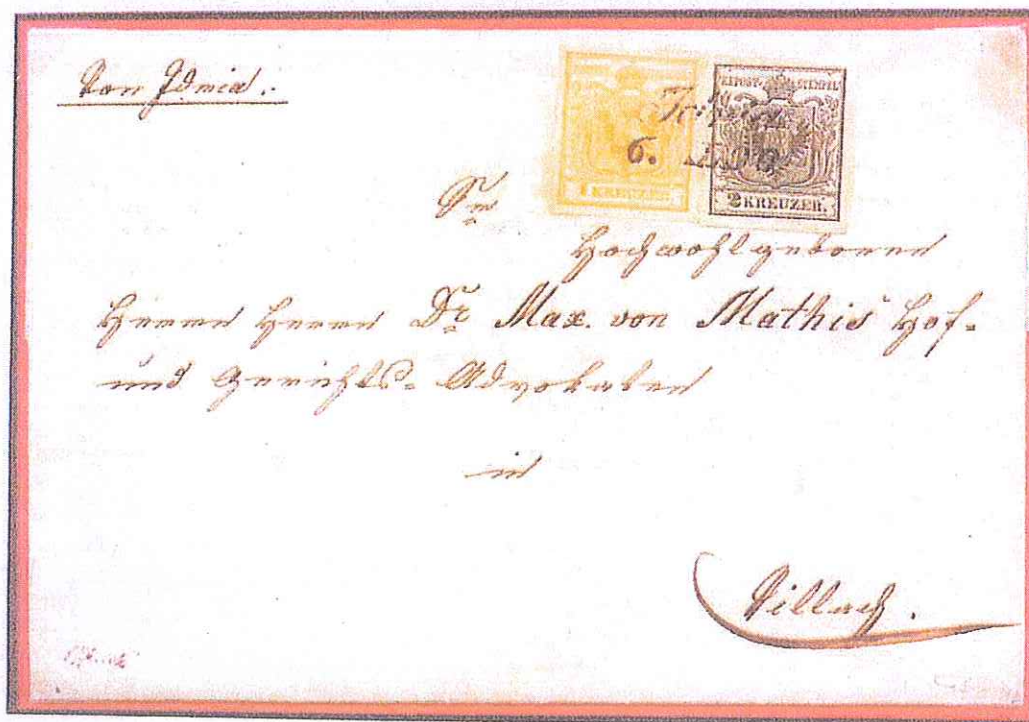 Von Idria.
KK POST-STEMPEL
6.
1 KREUZER
2 KREUZER.
Sr
Hochwohlgeboren
Herrn Herrn Dr Max. von Mathis Hof-
und Gerichts-Advokaten
in
Villach.